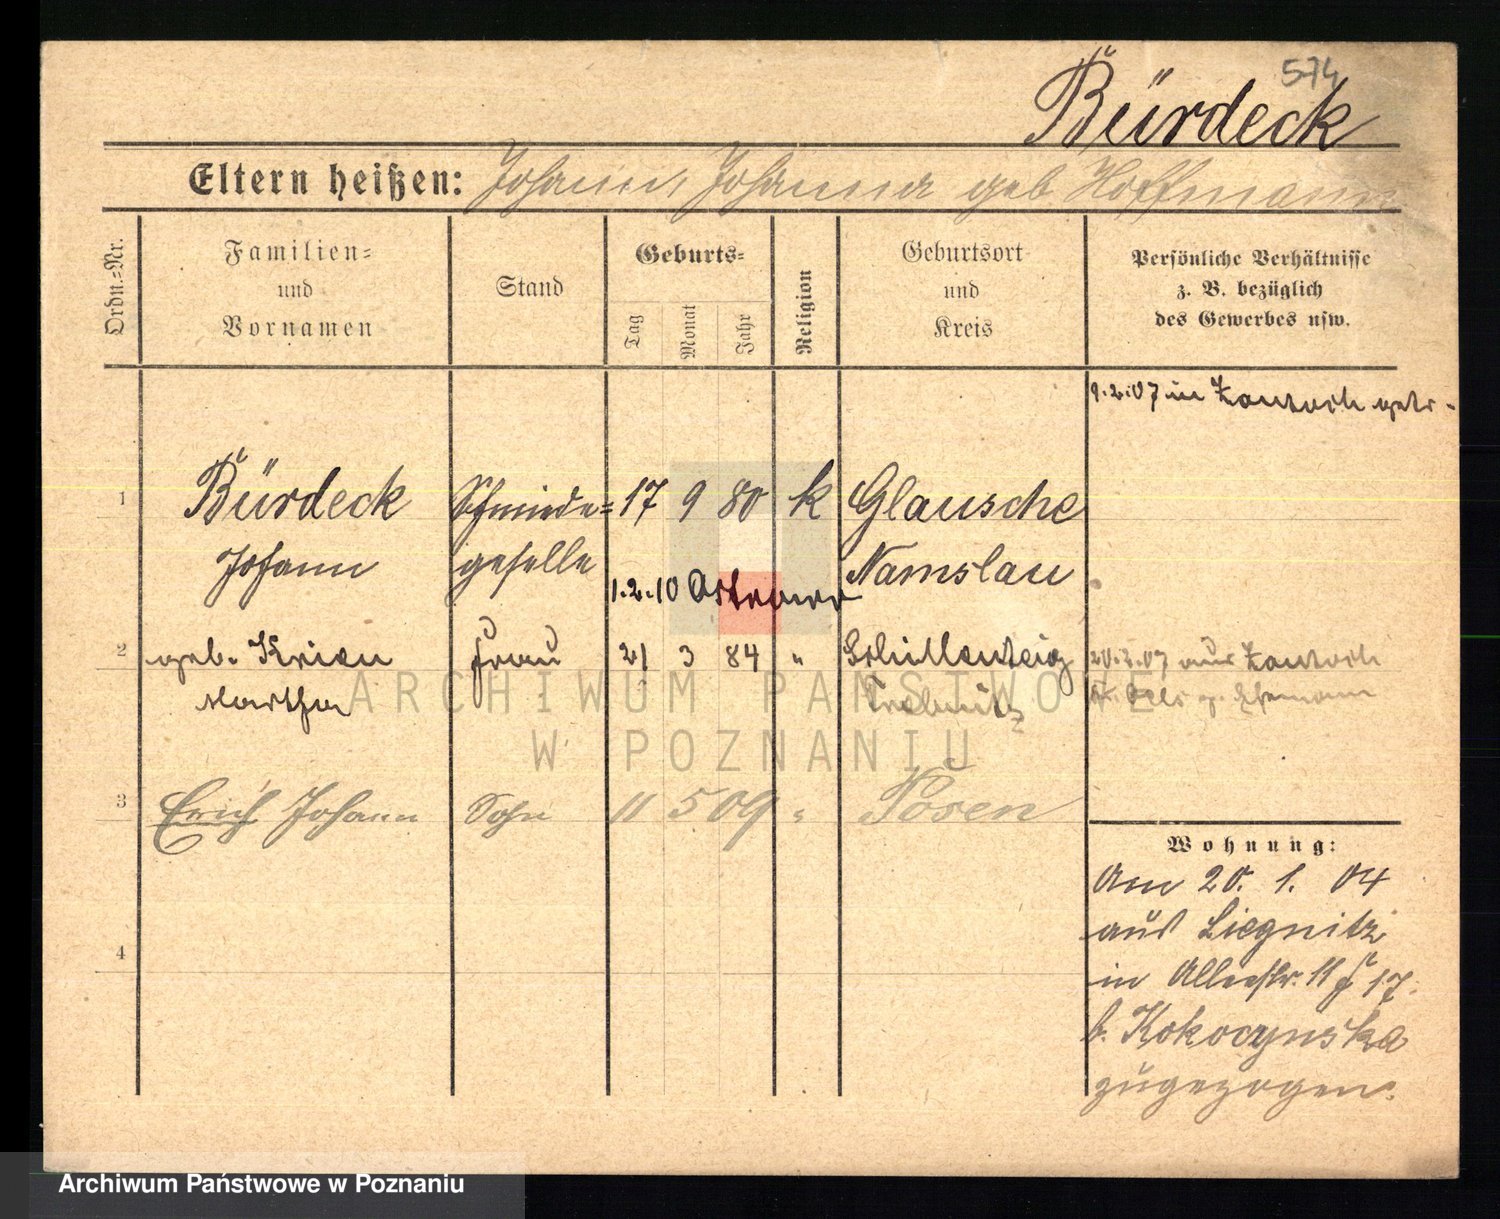 574
Bürdeck
Eltern heißen: Johann, Johanna geb Hoffmann
Ordn.=Nr.
Familien=
und
Vornamen
Stand
Geburts=
Tag
Monat
Jahr
Religion
Geburtsort
und
Kreis
Persönliche Verhältnisse
z. B. bezüglich
des Gewerbes usw.
9.2.07 in
1 Bürdeck Schmiede= 17 9 80 k Glausche
Johann geselle Namslau
1.2.10
2 geb. Frau 21 3 84 "
Martha Trebnitz
20.2.07 aus
3 Erich Johann Sohn 11 5 09 " Posen
4
Wohnung:
Am 20. 1. 04
aus Liegnitz
in Alleestr. 11 17.
b. Kokocynska
zugezogen.
ARCHIWUM PAŃSTWOWE
W POZNANIU
Archiwum Państwowe w Poznaniu